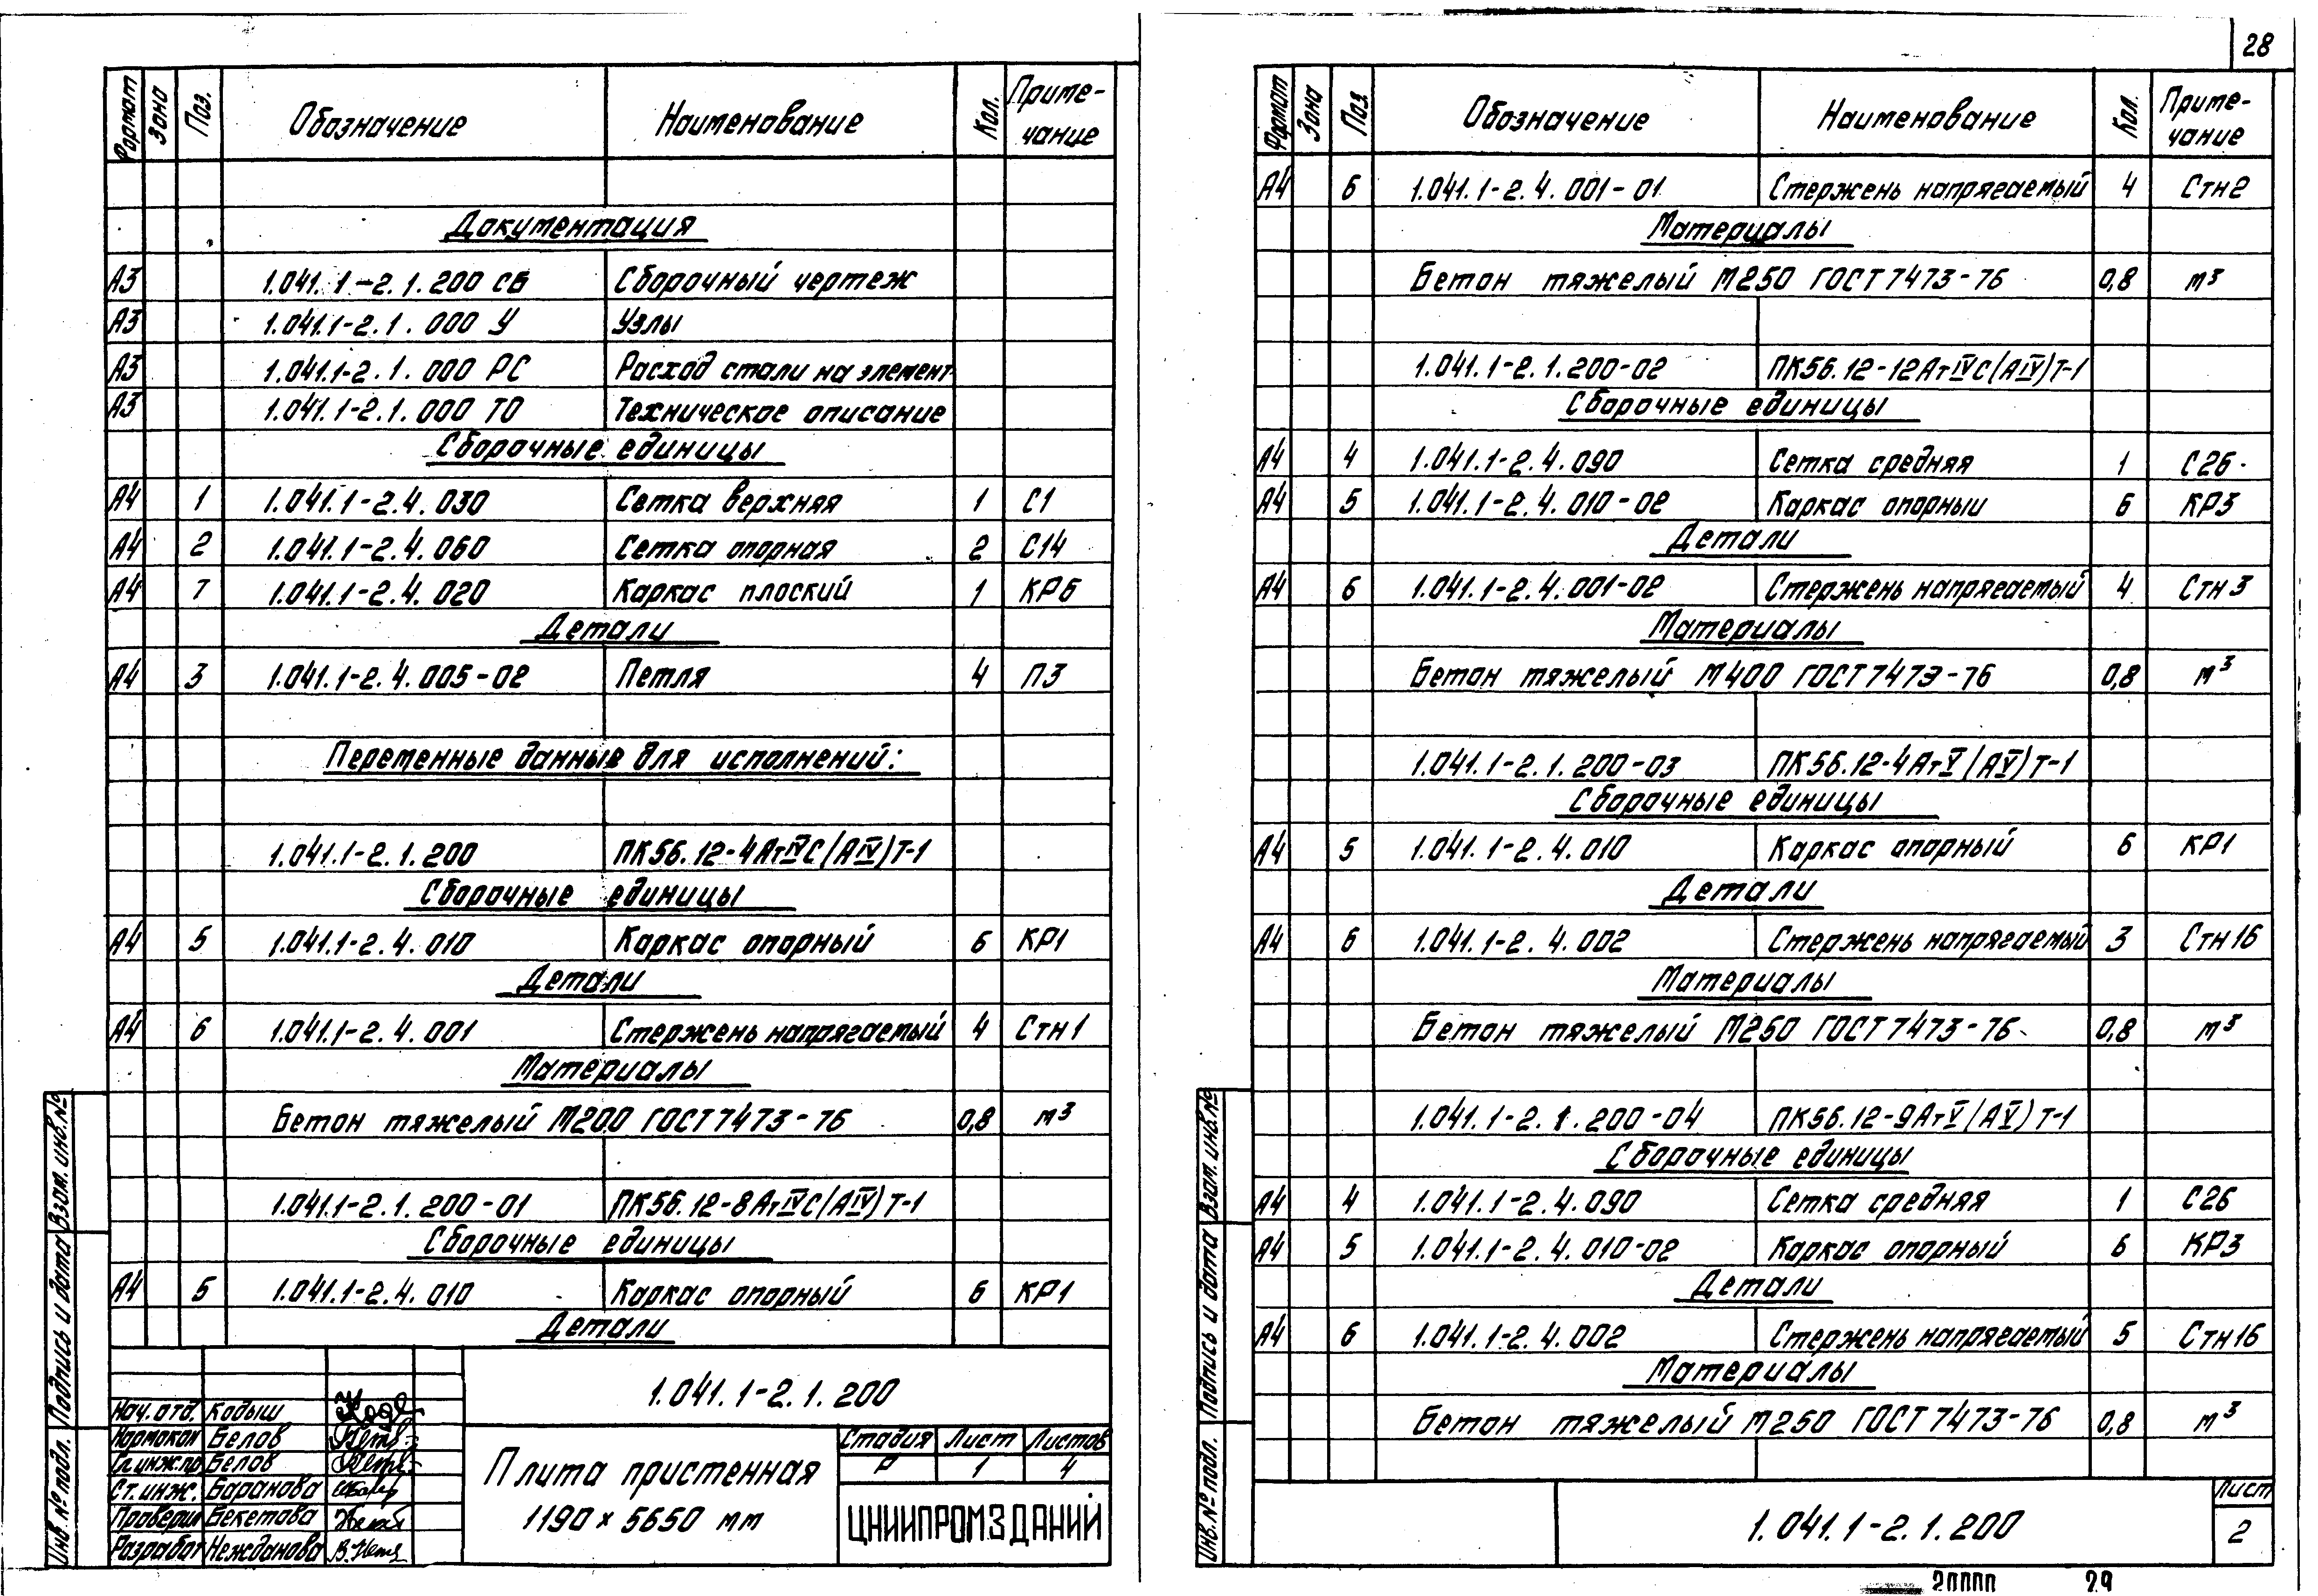 Формат Зона Поз. Обозначение Наименование Кол. Приме-чание
Документация
А3 1.041.1-2.1.200 СБ Сборочный чертеж
А3 1.041.1-2.1.000 У Узлы
А3 1.041.1-2.1.000 РС Расход стали на элемент
А3 1.041.1-2.1.000 ТО Техническое описание
Сборочные единицы
А4 1 1.041.1-2.4.030 Сетка верхняя 1 С1
А4 2 1.041.1-2.4.060 Сетка опорная 2 С14
А4 7 1.041.1-2.4.020 Каркас плоский 1 КР6
Детали
А4 3 1.041.1-2.4.005-02 Петля 4 П3
Переменные данные для исполнений:
1.041.1-2.1.200 ПК56.12-4АтIVС(АIV)Т-1
Сборочные единицы
А4 5 1.041.1-2.4.010 Каркас опорный 6 КР1
Детали
А4 6 1.041.1-2.4.001 Стержень напрягаемый 4 Стн1
Материалы
Бетон тяжелый М200 ГОСТ 7473-76 0,8 м³
1.041.1-2.1.200-01 ПК56.12-8АтIVС(АIV)Т-1
Сборочные единицы
А4 5 1.041.1-2.4.010 Каркас опорный 6 КР1
Детали
Инв.№ подл. Подпись и дата Взам.инв.№
1.041.1-2.1.200
Нач.отд. Кодыш
Нормокон Белов
Гл.инж.пр Белов
Ст.инж. Баранова
Проверил Бекетова
Разработ Нежданова
Плита пристенная
1190×5650 мм
Стадия Лист Листов
Р 1 4
ЦНИИПРОМЗДАНИЙ
28
Формат Зона Поз. Обозначение Наименование Кол. Приме-чание
А4 6 1.041.1-2.4.001-01 Стержень напрягаемый 4 Стн2
Материалы
Бетон тяжелый М250 ГОСТ 7473-76 0,8 м³
1.041.1-2.1.200-02 ПК56.12-12АтIVС(АIV)Т-1
Сборочные единицы
А4 4 1.041.1-2.4.090 Сетка средняя 1 С26
А4 5 1.041.1-2.4.010-02 Каркас опорный 6 КР3
Детали
А4 6 1.041.1-2.4.001-02 Стержень напрягаемый 4 Стн3
Материалы
Бетон тяжелый М400 ГОСТ 7473-76 0,8 м³
1.041.1-2.1.200-03 ПК56.12-4АтV(АV)Т-1
Сборочные единицы
А4 5 1.041.1-2.4.010 Каркас опорный 6 КР1
Детали
А4 6 1.041.1-2.4.002 Стержень напрягаемый 3 Стн16
Материалы
Бетон тяжелый М250 ГОСТ 7473-76 0,8 м³
1.041.1-2.1.200-04 ПК56.12-9АтV(АV)Т-1
Сборочные единицы
А4 4 1.041.1-2.4.090 Сетка средняя 1 С26
А4 5 1.041.1-2.4.010-02 Каркас опорный 6 КР3
Детали
А4 6 1.041.1-2.4.002 Стержень напрягаемый 5 Стн16
Материалы
Бетон тяжелый М250 ГОСТ 7473-76 0,8 м³
Инв.№ подл. Подпись и дата Взам.инв.№
1.041.1-2.1.200
Лист
2
29